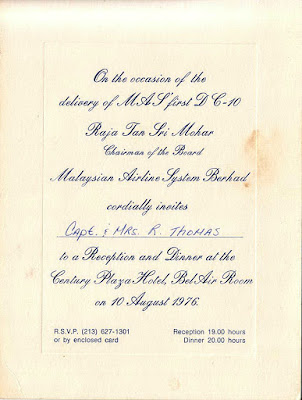 On the occasion of the
delivery of MAS' first DC-10
Raja Tan Sri Mohar
Chairman of the Board
Malaysian Airline System Berhad
cordially invites
CAPT. & MRS. R. THOMAS
to a Reception and Dinner at the
Century Plaza Hotel, Bel Air Room
on 10 August 1976.
R.S.V.P. (213) 627-1301 Reception 19.00 hours
or by enclosed card Dinner 20.00 hours